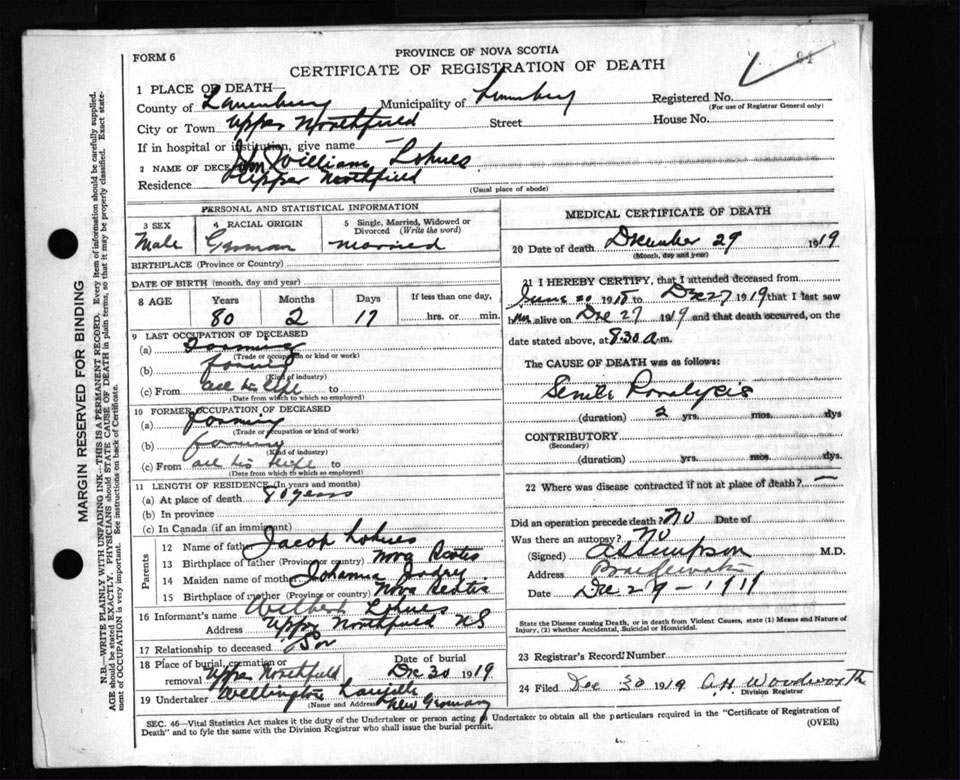 PROVINCE OF NOVA SCOTIA
FORM 6
CERTIFICATE OF REGISTRATION OF DEATH
1 PLACE OF DEATH—
County of Lunenburg Municipality of Lunenburg Registered No.
(For use of Registrar General only)
City or Town Upper Northfield Street House No.
If in hospital or institution, give name
2 NAME OF DECEASED Wm William Lohnes
Residence Upper Northfield
(Usual place of abode)
PERSONAL AND STATISTICAL INFORMATION
3 SEX Male
4 RACIAL ORIGIN German
5 Single, Married, Widowed or Divorced (Write the word) married
BIRTHPLACE (Province or Country)
DATE OF BIRTH (month, day and year)
8 AGE Years 80 Months 2 Days 17 If less than one day, hrs. or min.
9 LAST OCCUPATION OF DECEASED
(a) Farming
(Trade or occupation or kind or work)
(b) farming
(Kind of industry)
(c) From all his life to
(Date from which to which so employed)
10 FORMER OCCUPATION OF DECEASED
(a) farming
(Trade or occupation or kind of work)
(b) farming
(Kind of industry)
(c) From all his life to
(Date from which to which so employed)
11 LENGTH OF RESIDENCE (In years and months)
(a) At place of death 80 years
(b) In province
(c) In Canada (if an immigrant)
Parents
12 Name of father Jacob Lohnes
13 Birthplace of father (Province or country) Nova Scotia
14 Maiden name of mother Johanna
15 Birthplace of mother (Province or country) Nova Scotia
16 Informant's name Wilbert Lohnes
Address Upper Northfield NS
17 Relationship to deceased Son
18 Place of burial, cremation or removal Upper Northfield Date of burial Dec 30 1919
19 Undertaker Wellington
(Name and Address) New Germany
MEDICAL CERTIFICATE OF DEATH
20 Date of death December 29 1919
(Month, day and year)
21 I HEREBY CERTIFY, that I attended deceased from
June 20 1918 to Dec 27 1919 that I last saw
him alive on Dec 27 1919 and that death occurred, on the
date stated above, at 8.30 a.m.
The CAUSE OF DEATH was as follows:
Senile Paralysis
(duration) 2 yrs. mos. dys
CONTRIBUTORY
(Secondary)
(duration) yrs. mos. dys
22 Where was disease contracted if not at place of death? —
Did an operation precede death? NO Date of
Was there an autopsy? No
(Signed) A Simpson M.D.
Address Bridgewater
Date Dec 29 - 1919
State the Disease causing Death, or in death from Violent Causes, state (1) Means and Nature of
Injury, (2) whether Accidental, Suicidal or Homicidal.
23 Registrar's Record Number
24 Filed Dec 30 1919 A H Woodworth
Division Registrar
SEC. 46—Vital Statistics Act makes it the duty of the Undertaker or person acting as Undertaker to obtain all the particulars required in the "Certificate of Registration of
Death" and to fyle the same with the Division Registrar who shall issue the burial permit. (OVER)
MARGIN RESERVED FOR BINDING
N.B.—WRITE PLAINLY WITH UNFADING INK—THIS IS A PERMANENT RECORD. Every item of information should be carefully supplied.
AGE should be stated EXACTLY. PHYSICIANS should STATE CAUSE OF DEATH in plain terms, so that it may be properly classified. Exact state-
ment of OCCUPATION is very important. See instructions on back of Certificate.